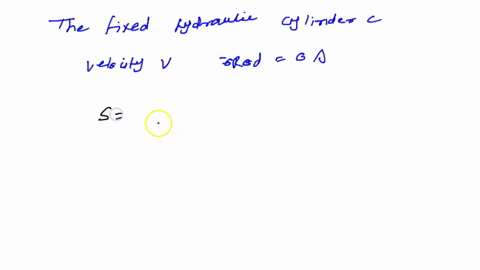 The fixed hydraulic cylinder c
velocity v = GA
S =